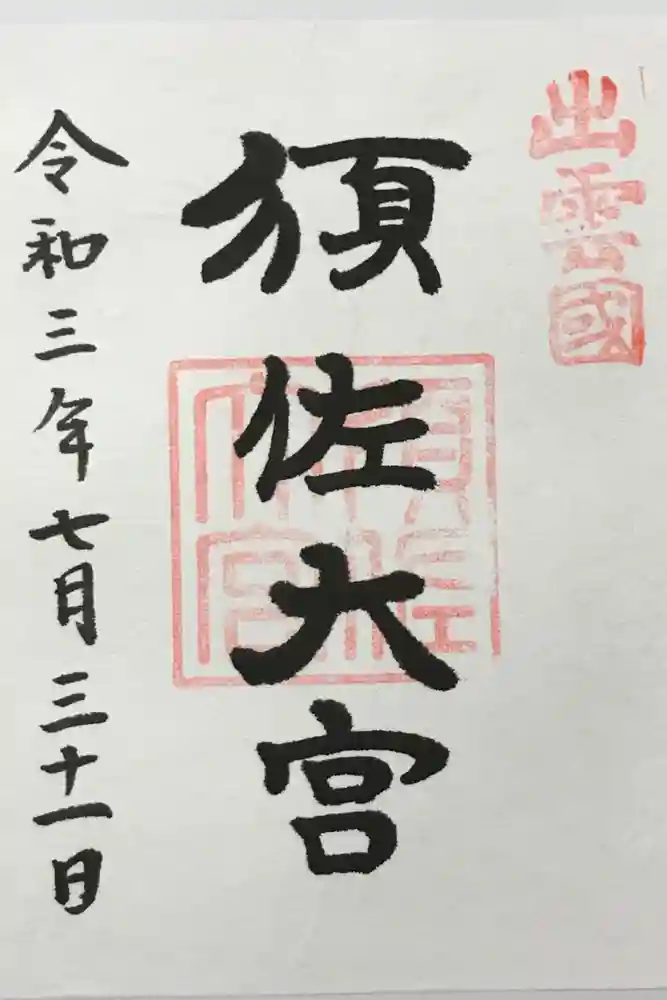 出雲國
須佐大宮
須佐
大宮
令和三年七月三十一日